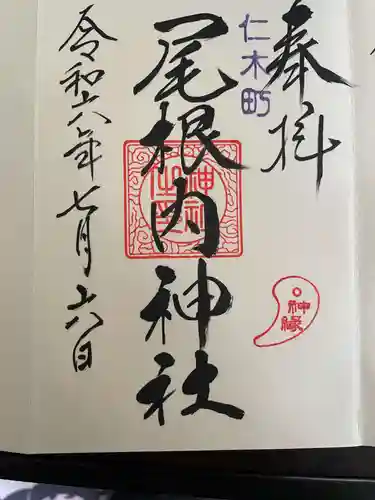 奉拝
仁木町
尾根内神社
神社之印
神縁
令和六年七月二六日